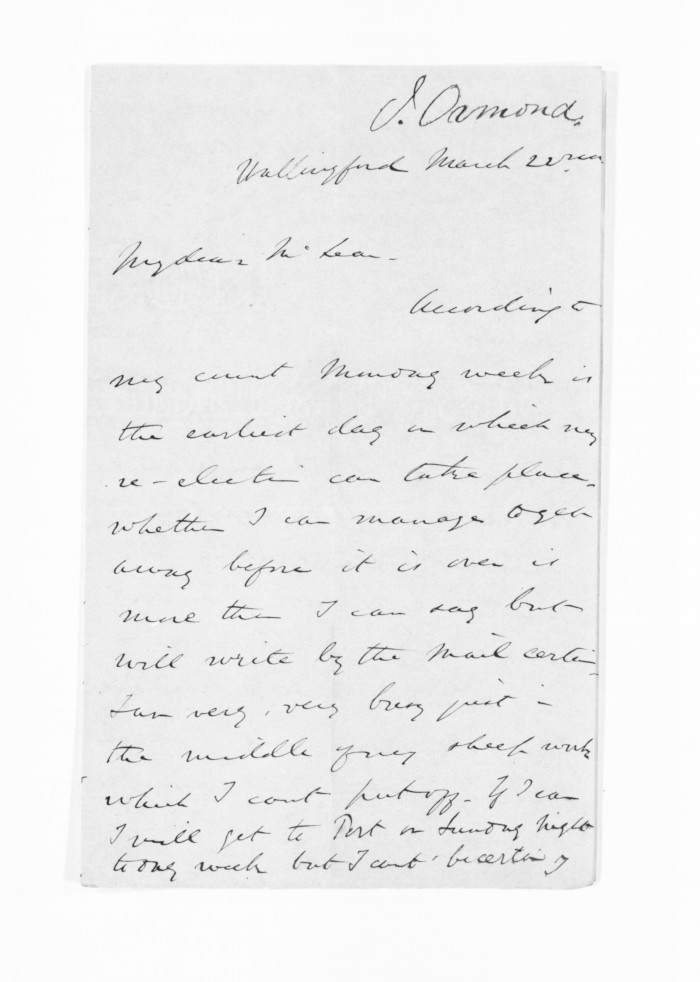 J. Ormond.
Wallingford March 22nd
My dear McLean -
According to
my count Monday week is
the earliest day on which my
re-election can take place.
whether I can manage to get
away before it is over is
more than I can say but
will write by the Mail certain
I am very, very busy just in
the middle of my sheep work
which I cant put off. If I can
I will get to Port on Sunday night
today week but I cant be certain of